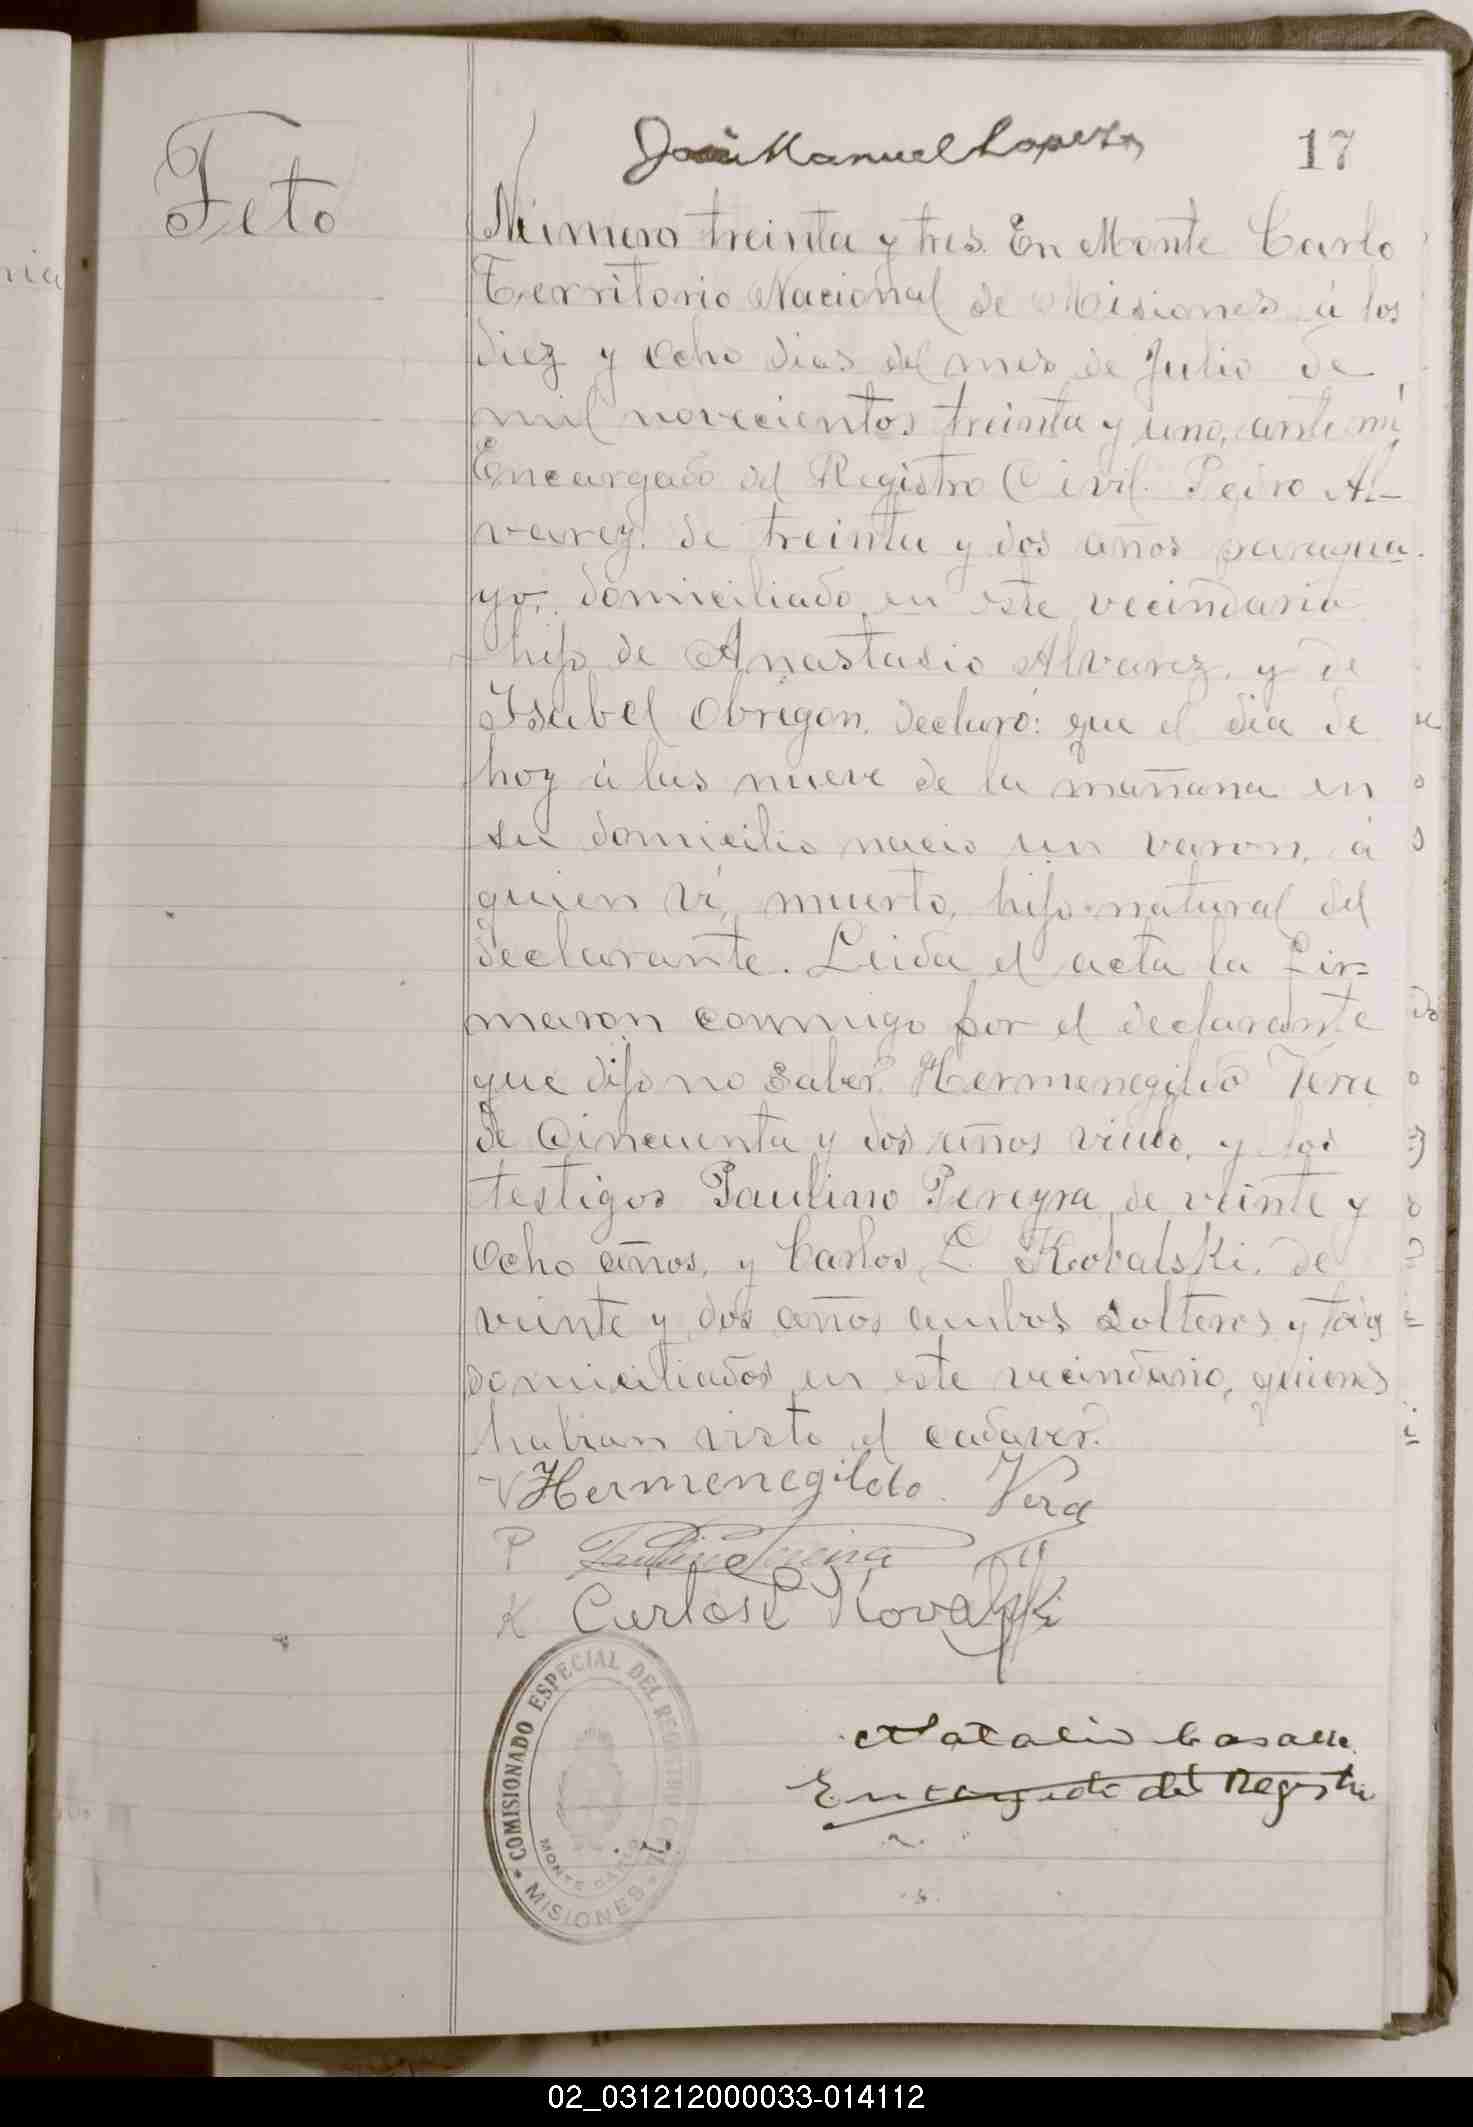 Feto
José Manuel Lopez
17
Número treinta y tres. En Monte Carlo
Territorio Nacional de Misiones á los
diez y ocho dias del mes de Julio de
mil novecientos treinta y uno, ante mi,
Encargado del Registro Civil. Pedro Al-
varez. de treinta y dos años paragua-
yo, domiciliado en este vecindario
hijo de Anastasio Alvarez, y de
Isabel Obregon, declaró: que el dia de
hoy á las nueve de la mañana en
su domicilio nacio un varon, á
quien vi, muerto, hijo natural del
declarante. Leida el acta la fir=
maron conmigo por el declarante
que dijo no saber. Hermenegildo Vera
de Cincuenta y dos años viudo, y los
testigos Paulino Pereyra de veinte y
ocho años, y Carlos L. Kovalski, de
veinte y dos años ambos solteros y
domiciliados en este vecindario, quienes
habian visto el cadaver.
V Hermenegildo Vera
P
K Carlos L Kovalski
COMISIONADO ESPECIAL DEL REGISTRO CIVIL
MONTE CARLO
MISIONES
Natalio
Encargado del Registro
02_031212000033-014112